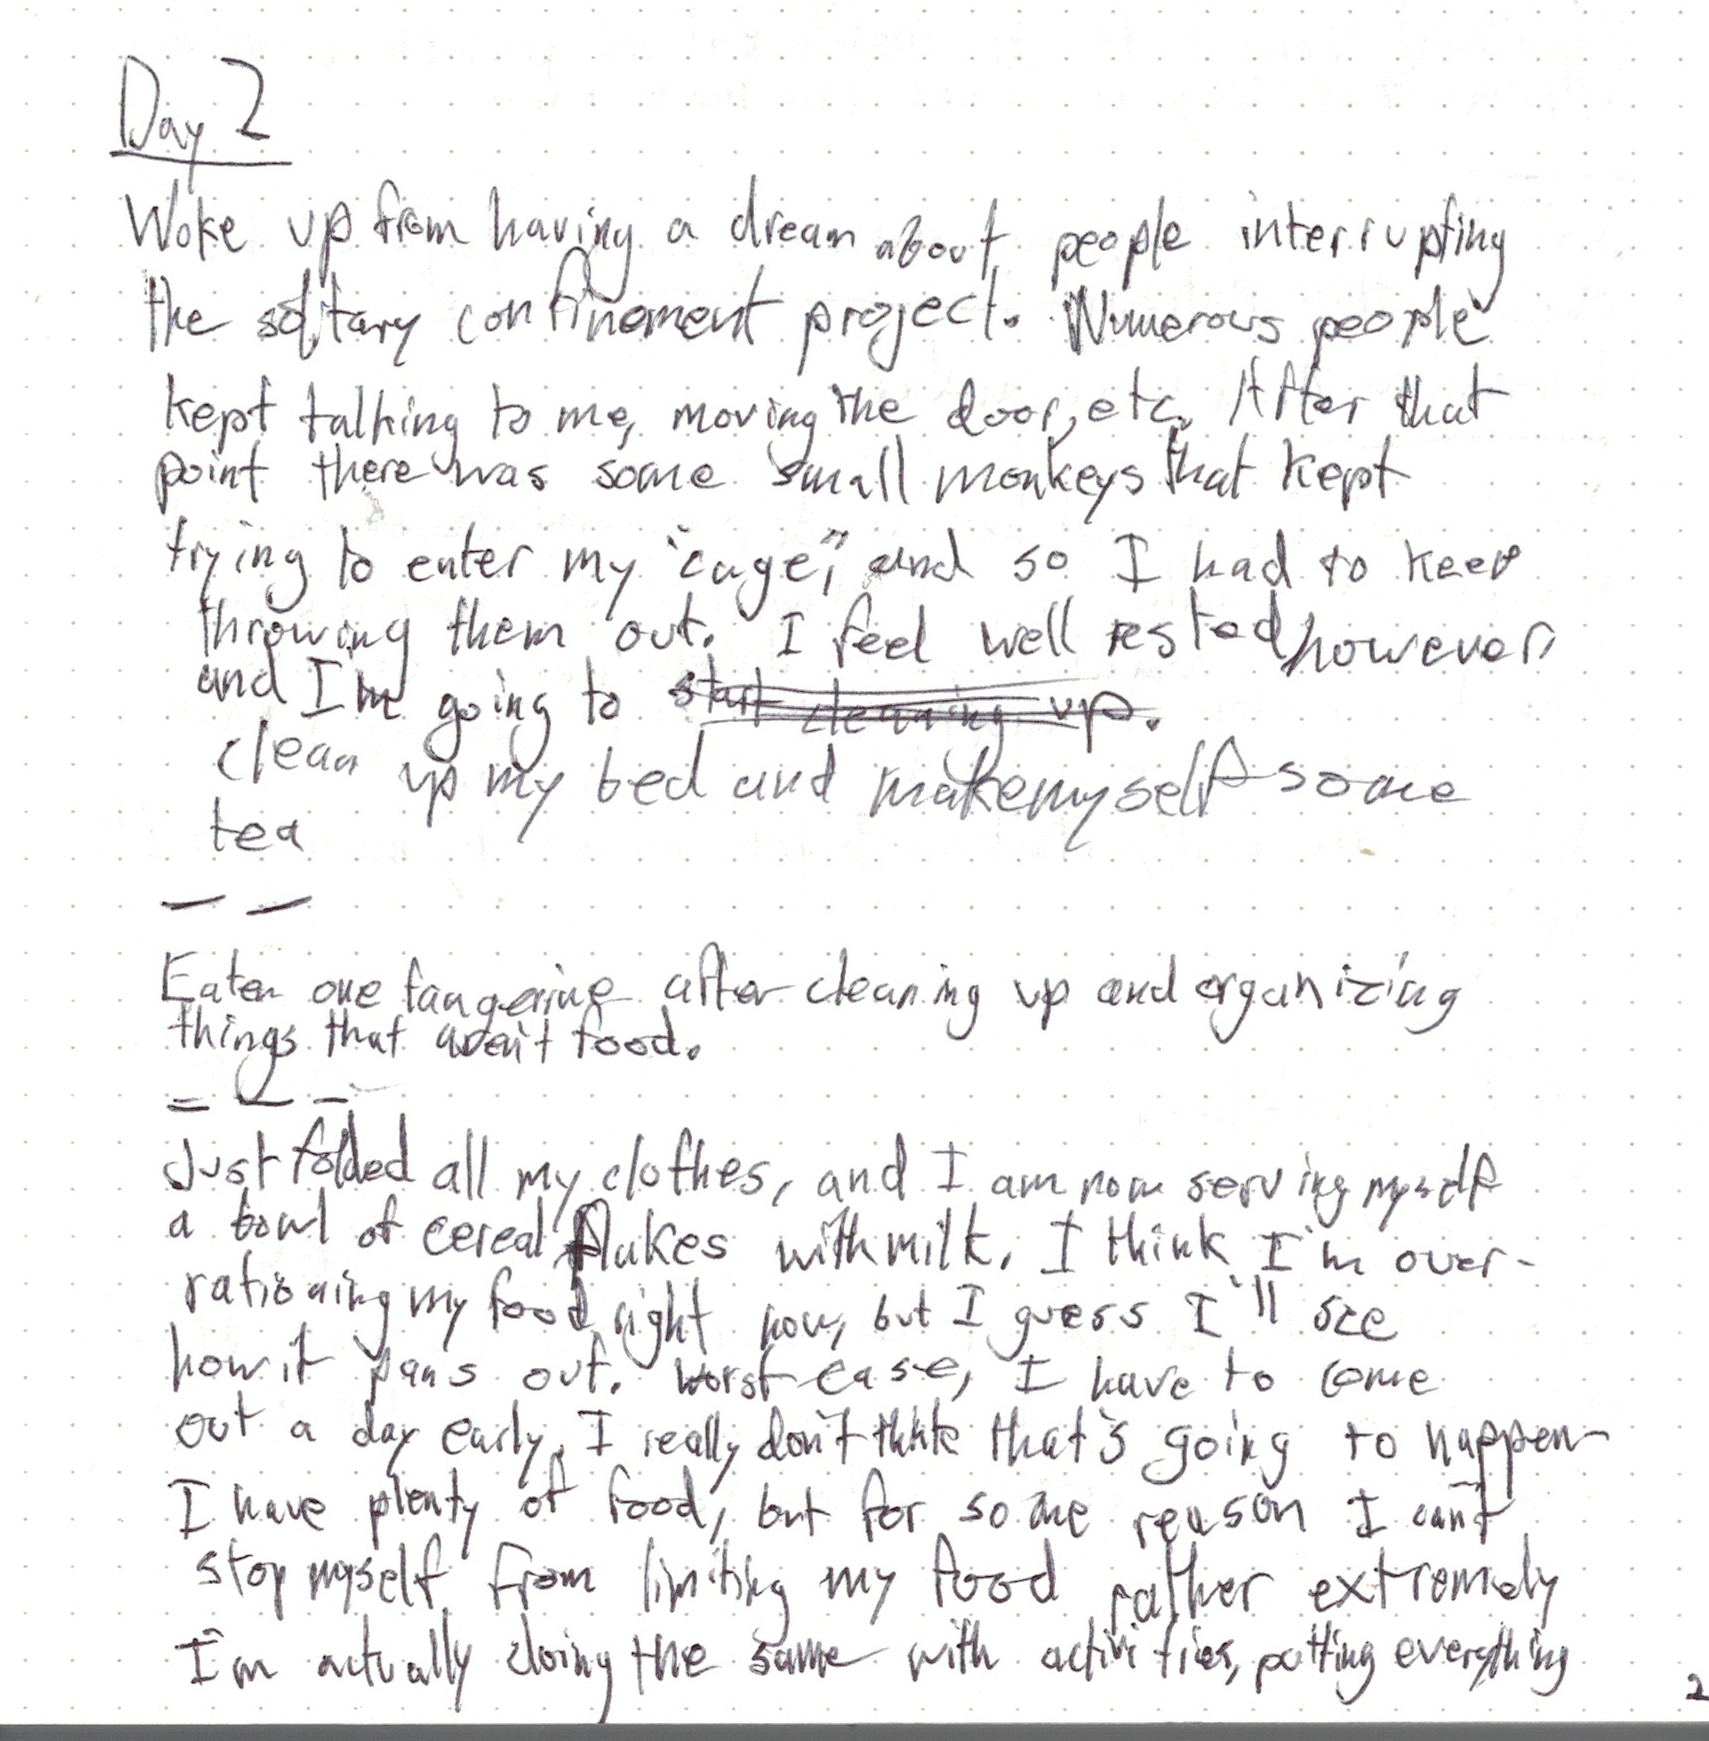 Day 2
Woke up from having a dream about people interrupting
the solitary confinement project. Numerous people
kept talking to me, moving the door, etc. After that
point there was some small monkeys that kept
trying to enter my "cage", and so I had to keep
throwing them out. I feel well rested however,
and I'm going to start cleaning up.
clean up my bed and make myself some
tea
— —
Eaten one tangerine after cleaning up and organizing
things that aren't food.
= — —
Just folded all my clothes, and I am now serving myself
a bowl of cereal flakes with milk. I think I'm over-
rationing my food right now, but I guess I'll see
how it pans out. Worst case, I have to come
out a day early. I really don't think that's going to happen—
I have plenty of food, but for some reason I can't
stop myself from limiting my food rather extremely
I'm actually doing the same with activities, putting everything
2